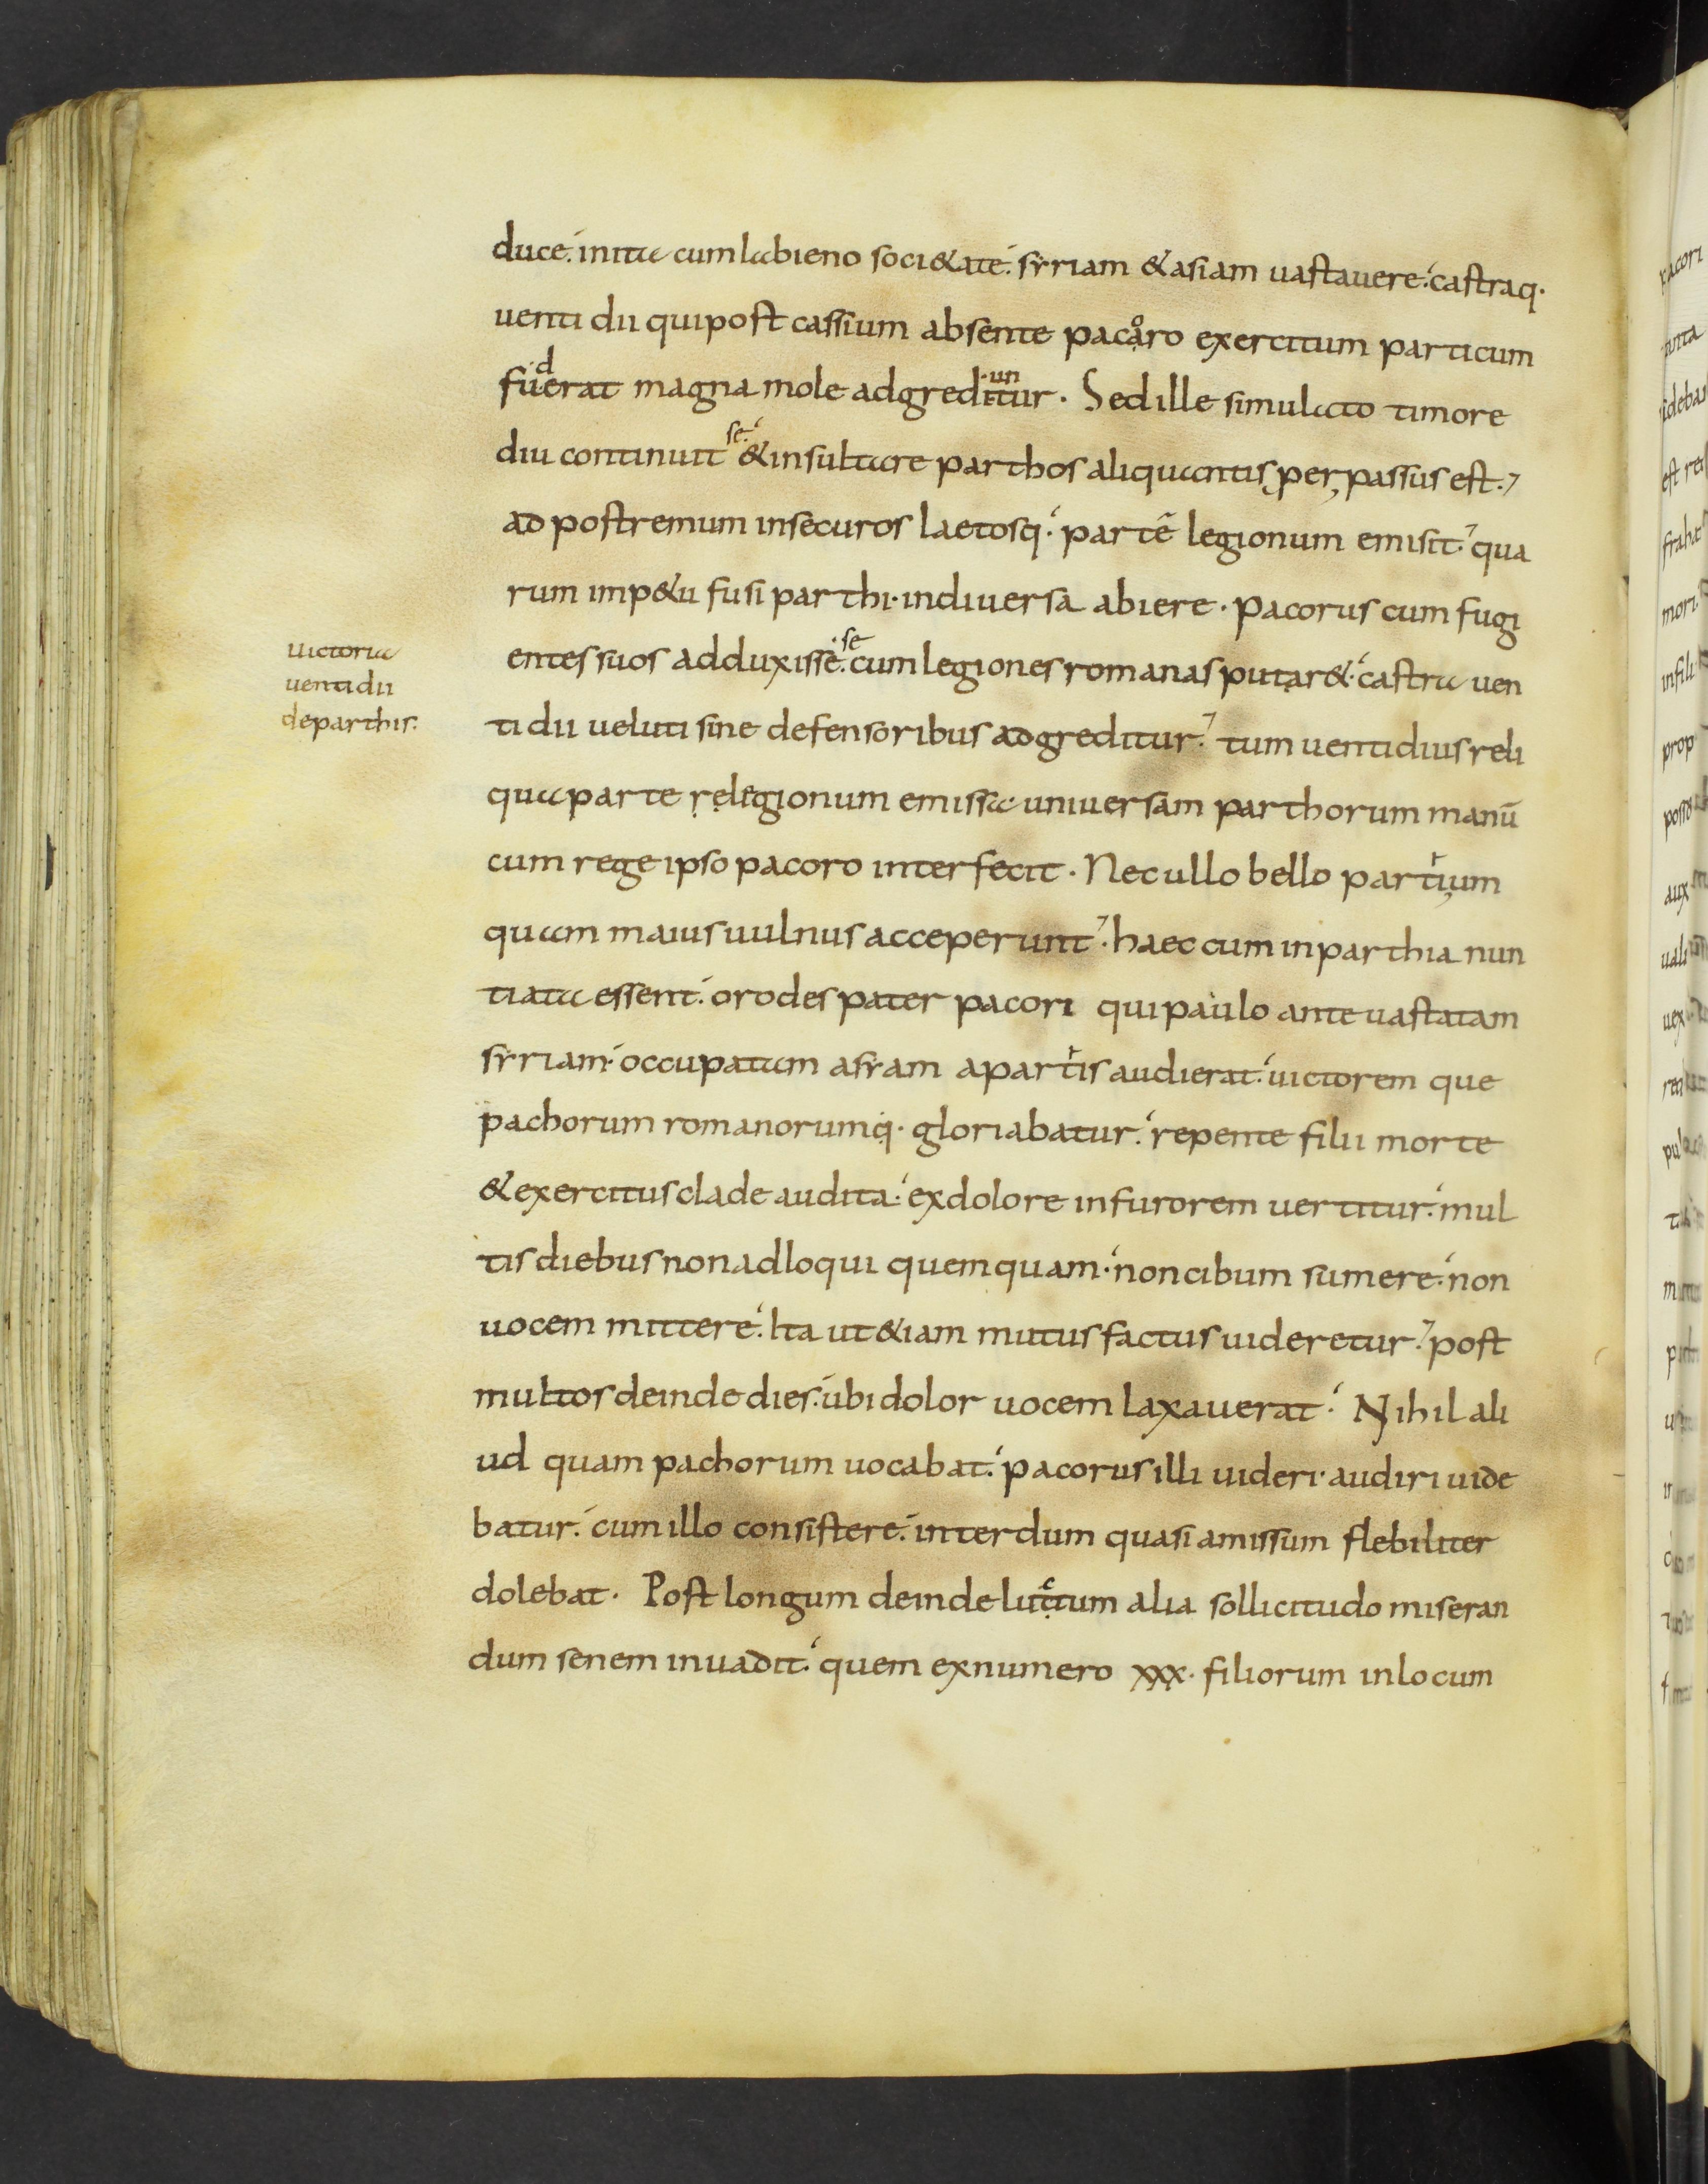 duce. inita cum labieno soci&ate. syriam & asiam uastauere. castraq.
uentidii qui post cassium absente pacaoro exercitum particum
fuderat magna mole adgreditur un. Sed ille simulato timore
diu continuit se. & insultare parthos aliquantisper perpassus est.
ad postremum insecuros laetosq. partē legionum emisit. qua
rum imp&u fusi parthi. indiuersa abiere. pacorus cum fugi
entes suos adduxisse. se cum legiones romanas putar&. castra uen
uictoria
uentidii
departhis.
tidii ueluti sine defensoribus adgreditur. tum uentidius reli
qua parte relegionum emissa uniuersam parthorum manū
cum rege ipso pacoro interfecit. Nec ullo bello partium
quam maius uulnus acceperunt. haec cum inparthia nun
tiata essent. orodes pater pacori qui paulo ante uastatam
syriam. occupatam asyam apartis audierat. uictorem que
pachorum romanorumq. gloriabatur. repente filii morte
& exercitus clade audita. ex dolore infurorem uertitur. mul
tis diebus non adloqui quemquam. non cibum sumere. non
uocem mittere. Ita ut &iam mutus factus uideretur. post
multos deinde dies. ubi dolor uocem laxauerat. Nihil ali
ud quam pachorum uocabat. pacorus illi uideri. audiri uide
batur. cum illo consistere. interdum quasi amissum flebiliter
dolebat. Post longum deinde luctum alia sollicitudo miseran
dum senem inuadit. quem exnumero xxx. filiorum inlocum